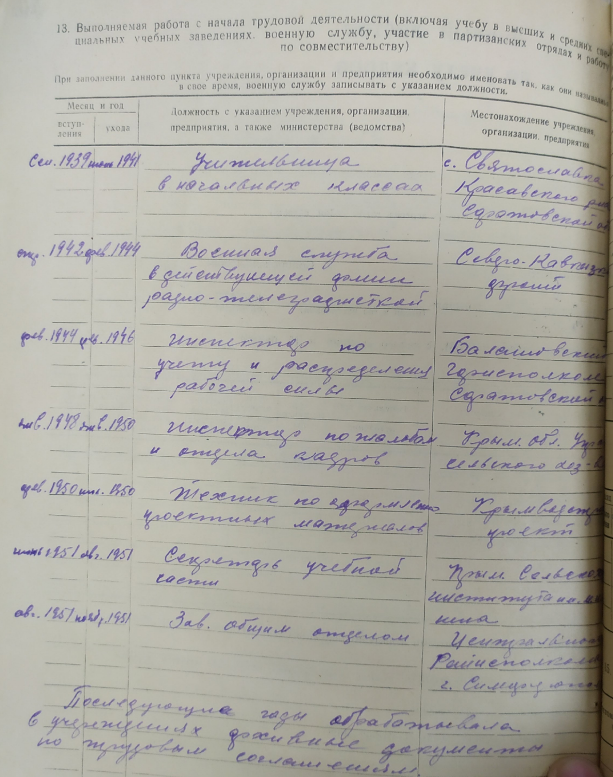 13. Выполняемая работа с начала трудовой деятельности (включая учебу в высших и средних спе-
циальных учебных заведениях, военную службу, участие в партизанских отрядах и работу
по совместительству)
При заполнении данного пункта учреждения, организации и предприятия необходимо именовать так, как они назывались
в свое время, военную службу записывать с указанием должности.
Месяц и год
вступ-
ления
ухода
Должность с указанием учреждения, организации,
предприятия, а также министерства (ведомства)
Местонахождение учреждения,
организации, предприятия
Сен. 1939 июнь 1941 Учительница с. Святославка
в начальных классах Красавского
Саратовской
1942 фев. 1944 Военная служба Северо-Кавказ
в действующей армии
радио-телеграфисткой
фев. 1944 1946 Инспектор по Балашовский
учету и распределения Горисполком
рабочей силы Саратовской
янв. 1948 янв. 1950 Инспектор по жалобам Крым. обл. Упр
и отдела кадров сельского хоз-ва
фев. 1950 1950 Техник по оформлению Крымводстрой
проектных материалов проект
июнь 1951 авг. 1951 Секретарь учебной Крым. Сельско
части института им.
авг. 1951 нояб. 1951 Зав. общим отделом Центральный
Райисполком
г. Симферополь
Последующие годы обрабатывала
в учреждениях архивные документы
по трудовым соглашениям